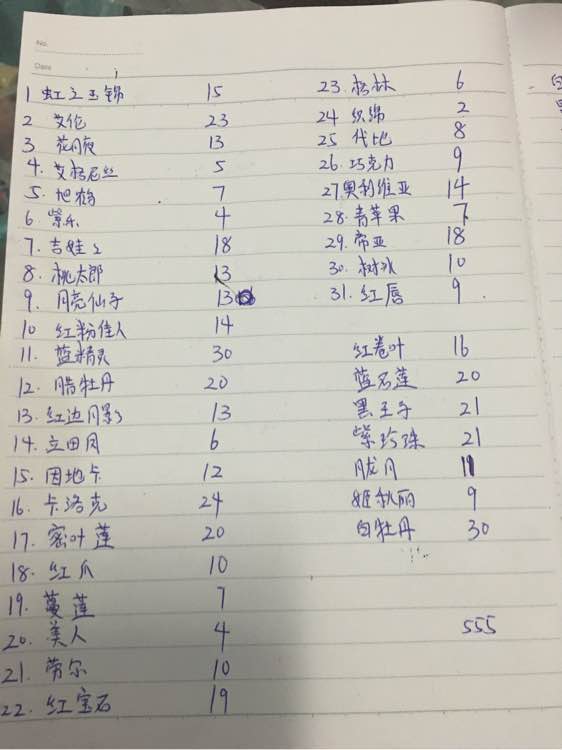 No.
Date
1 虹之玉锦 15
2 艾伦 23
3 花月夜 13
4. 艾格尼丝 5
5. 旭鹤 7
6 紫乐 4
7. 吉娃娃 18
8. 桃太郎 13
9. 月亮仙子 13
10 红粉佳人 14
11. 蓝精灵 30
12. 腊牡丹 20
13. 红边月影 13
14. 立田凤 6
15. 因地卡 12
16. 卡洛克 24
17. 密叶莲 20
18. 红爪 10
19. 蔓莲 7
20. 美人 4
21. 劳尔 10
22. 红宝石 19
23. 格林 6
24 织绵 2
25 代比 8
26. 巧克力 9
27. 奥利维亚 14
28. 青苹果 7
29. 帝亚 18
30. 树冰 10
31. 红唇 9
红卷叶 16
蓝石莲 20
黑王子 21
紫珍珠 21
胧月 11
姬秋丽 9
白牡丹 30
555